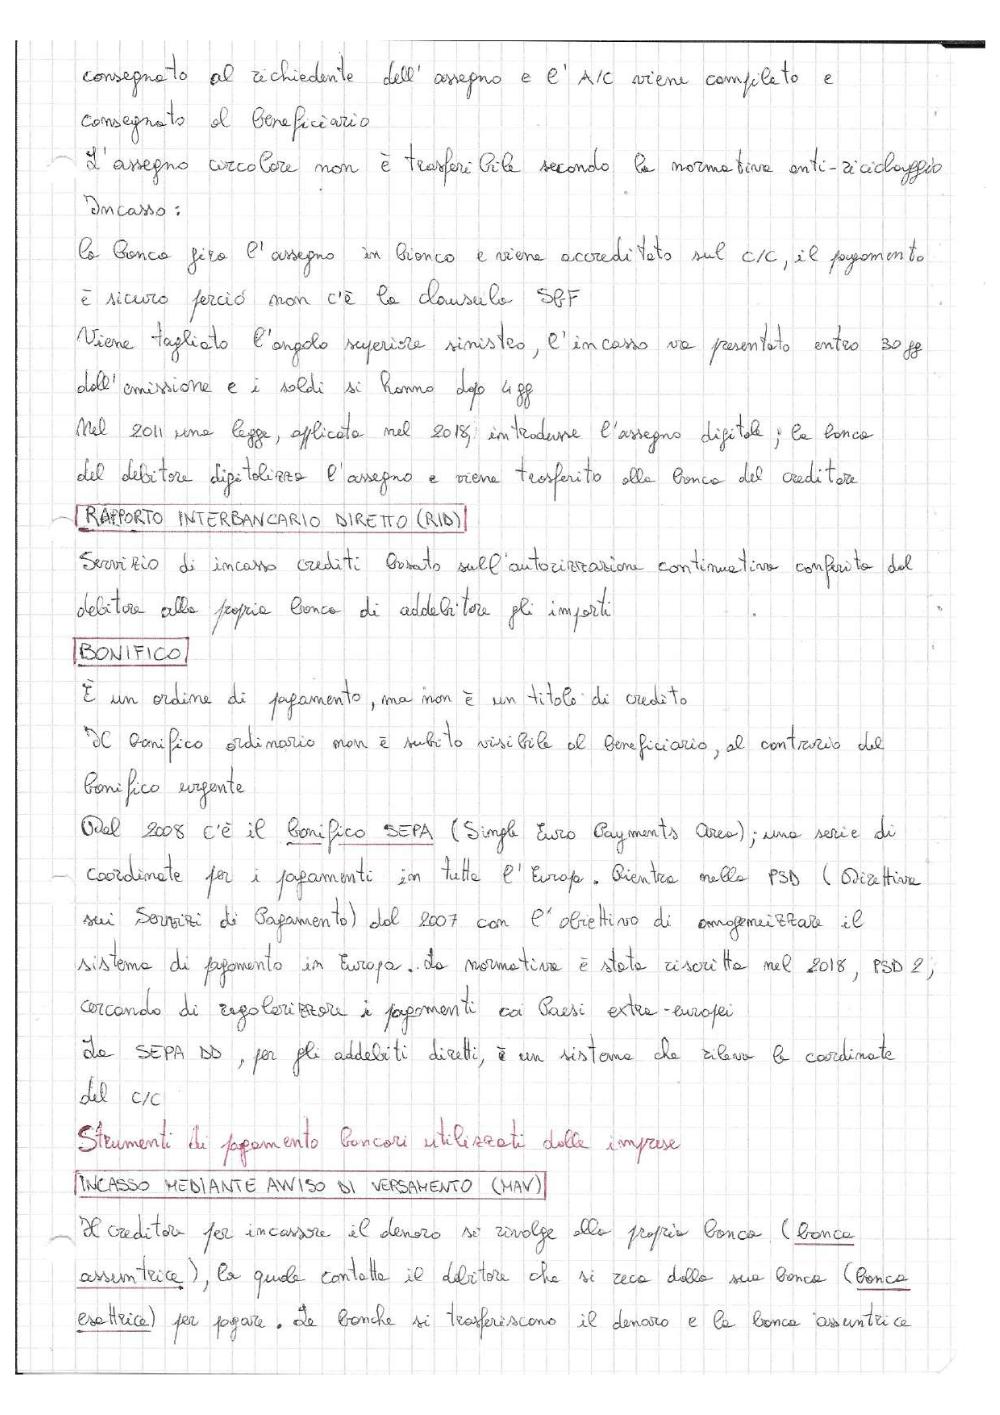 consegnato al richiedente dell'assegno e l'A/C viene compilato e
consegnato al beneficiario
L'assegno circolare non è trasferibile secondo la normativa anti-riciclaggio
Incasso:
la banca gira l'assegno in bianco e viene accreditato sul c/c, il pagamento
è sicuro perciò non c'è la clausula SBF
Viene tagliato l'angolo superiore sinistro, l'incasso va presentato entro 30 gg
dall'emissione e i soldi si hanno dopo 4 gg
Nel 2011 una legge, applicata nel 2018, introdusse l'assegno digitale; la banca
del debitore digitalizza l'assegno e viene trasferito alla banca del creditore
RAPPORTO INTERBANCARIO DIRETTO (RID)
Servizio di incasso crediti basato sull'autorizzazione continuativa conferita dal
debitore alla propria banca di addebitare gli importi
BONIFICO
È un ordine di pagamento, ma non è un titolo di credito
Il bonifico ordinario non è subito visibile al beneficiario, al contrario del
bonifico urgente
Dal 2008 c'è il bonifico SEPA (Single Euro Payments Area); una serie di
coordinate per i pagamenti in tutta l'Europa. Rientra nella PSD (Direttiva
sui Servizi di Pagamento) dal 2007 con l'obiettivo di omogeneizzare il
sistema di pagamento in Europa. La normativa è stata riscritta nel 2018, PSD 2,
cercando di regolarizzare i pagamenti coi Paesi extra-europei
La SEPA DD, per gli addebiti diretti, è un sistema che rileva le coordinate
del c/c
Strumenti di pagamento bancari utilizzati dalle imprese
INCASSO MEDIANTE AVVISO DI VERSAMENTO (MAV)
Il creditore per incassare il denaro si rivolge alla propria banca (banca
assuntrice), la quale contatta il debitore che si reca dalla sua banca (banca
esattrice) per pagare. Le banche si trasferiscono il denaro e la banca assuntrice